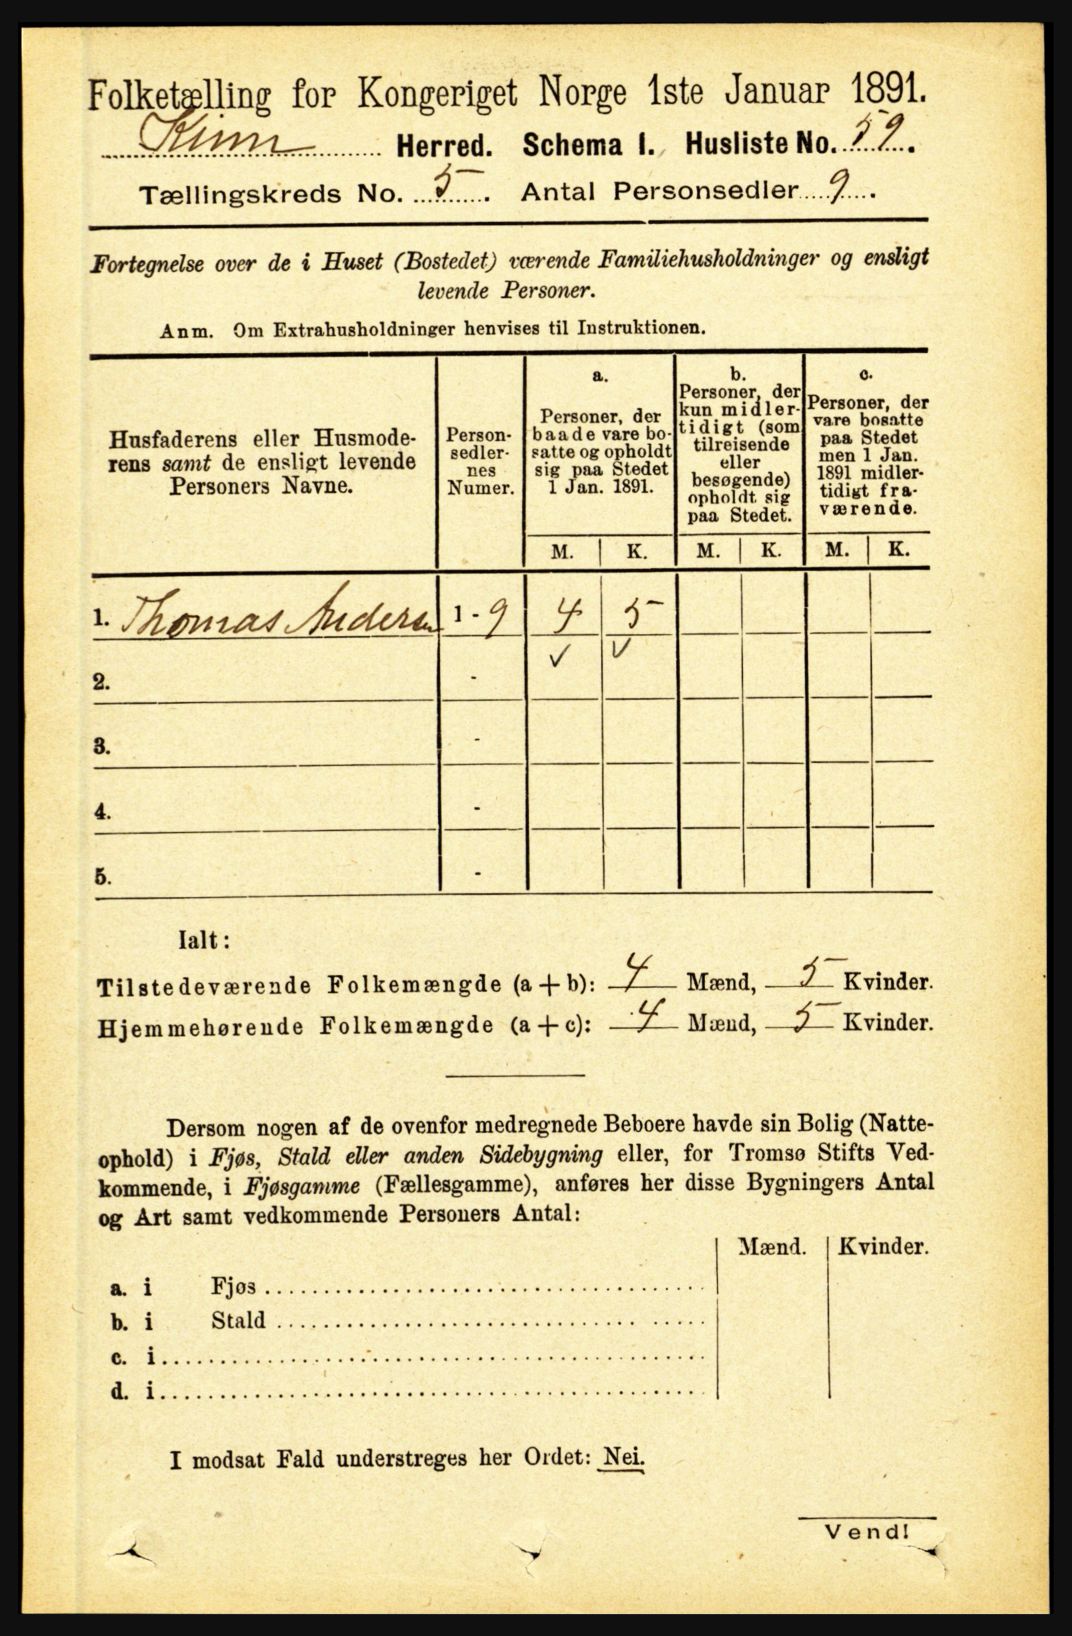 Folketælling for Kongeriget Norge 1ste Januar 1891.
Kinn Herred. Schema I. Husliste No. 59.
Tællingskreds No. 5. Antal Personsedler 9.
Fortegnelse over de i Huset (Bostedet) værende Familiehusholdninger og ensligt
levende Personer.
Anm. Om Extrahusholdninger henvises til Instruktionen.
Husfaderens eller Husmode-
rens samt de ensligt levende
Personers Navne.
Person-
sedler-
nes
Numer.
a.
Personer, der
baade vare bo-
satte og opholdt
sig paa Stedet
1 Jan. 1891.
b.
Personer, der
kun midler-
tidigt (som
tilreisende
eller
besøgende)
opholdt sig
paa Stedet.
c.
Personer, der
vare bosatte
paa Stedet
men 1 Jan.
1891 midler-
tidigt fra-
værende.
M. K. M. K. M. K.
1. Thomas Andersen 1 - 9 4 5
2. -
3. -
4. -
5. -
Ialt:
Tilstedeværende Folkemængde (a + b): 4 Mænd, 5 Kvinder.
Hjemmehørende Folkemængde (a + c): 4 Mænd, 5 Kvinder.
Dersom nogen af de ovenfor medregnede Beboere havde sin Bolig (Natte-
ophold) i Fjøs, Stald eller anden Sidebygning eller, for Tromsø Stifts Ved-
kommende, i Fjøsgamme (Fællesgamme), anføres her disse Bygningers Antal
og Art samt vedkommende Personers Antal:
Mænd. Kvinder.
a. i Fjøs
b. i Stald
c. i
d. i
I modsat Fald understreges her Ordet: Nei.
Vend!